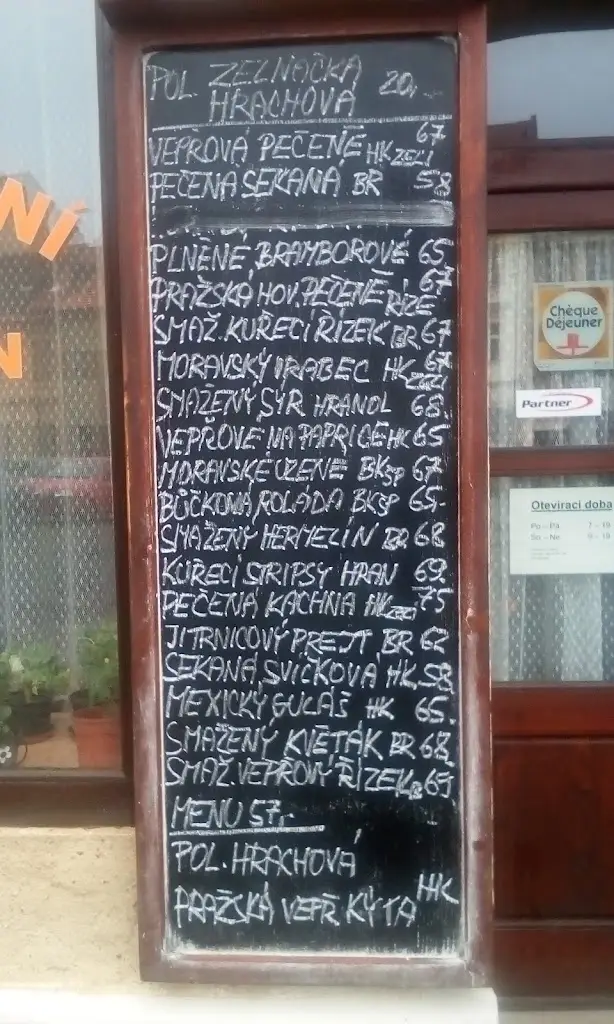 POL. ZELNAČKA 20,-
HRACHOVÁ
VEPŘOVÁ PEČENĚ HK ZELI 67
PEČENÁ SEKANÁ BR 58
PLNĚNÉ BRAMBOROVÉ 65
PRAŽSKÁ HOV. PEČENĚ RÝŽE 67
SMAŽ. KUŘECÍ ŘÍZEK BR 67
MORAVSKÝ VRABEC HK ZELI 67
SMAŽENÝ SÝR HRANOL 68
VEPŘOVÉ NA PAPRICE HK 65
MORAVSKÉ UZENÉ BK SP 67
BŮČKOVÁ ROLÁDA BK SP 65,-
SMAŽENÝ HERMELÍN BR 68
KUŘECÍ STRIPSY HRAN 69
PEČENÁ KACHNA HK ZELI 75
JITRNICOVÝ PREJT BR 62
SEKANÁ, SVÍČKOVÁ HK 58
MEXICKÝ GULÁŠ HK 65.
SMAŽENÝ KVĚTÁK BR 68
SMAŽ. VEPŘOVÝ ŘÍZEK 69
MENU 57,-
POL. HRACHOVÁ
PRAŽSKÁ VEPŘ KÝTA HK
NÍ
N
Chèque
Déjeuner
Partner
Otevírací doba
Po – Pá 7 – 19
So – Ne